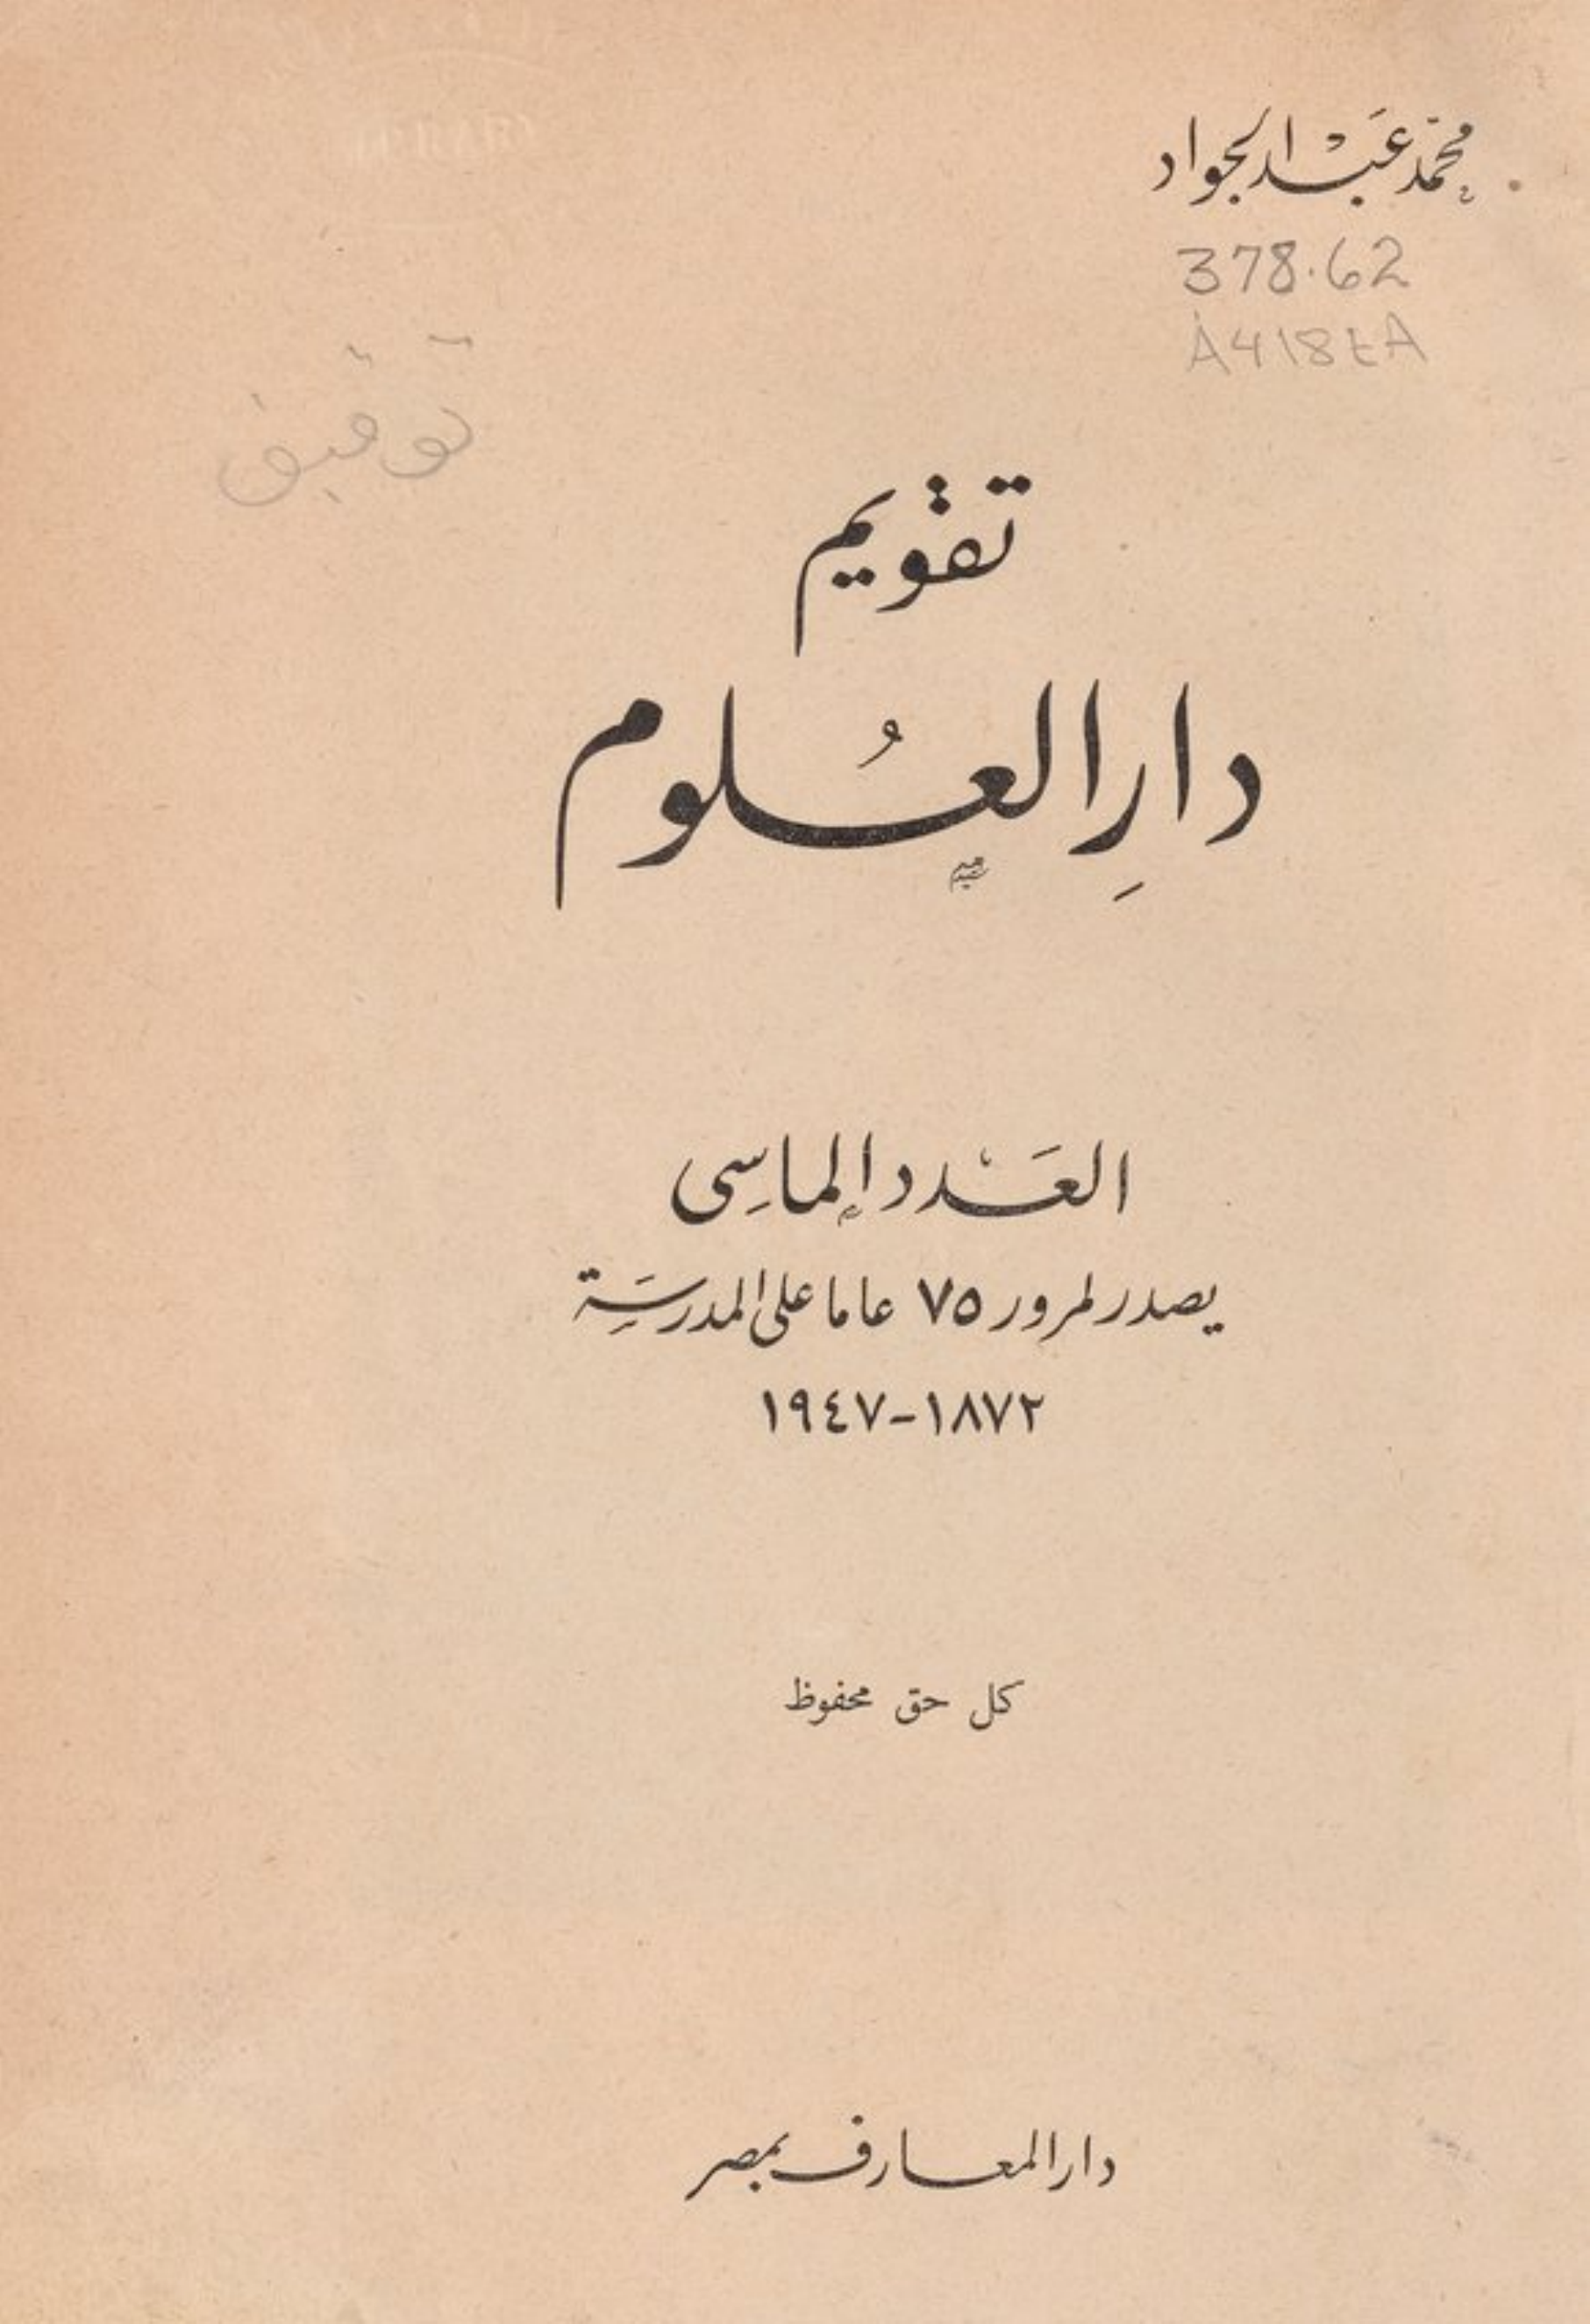 محمد عبد الجواد
378.62
A418tA
توفيق
تقويم
دارِ العُلوم
العَدد الماسِى
يصدر لمرور ٧٥ عاما على المدرسَة
١٨٧٢-١٩٤٧
كل حق محفوظ
دار المعارف بمصر